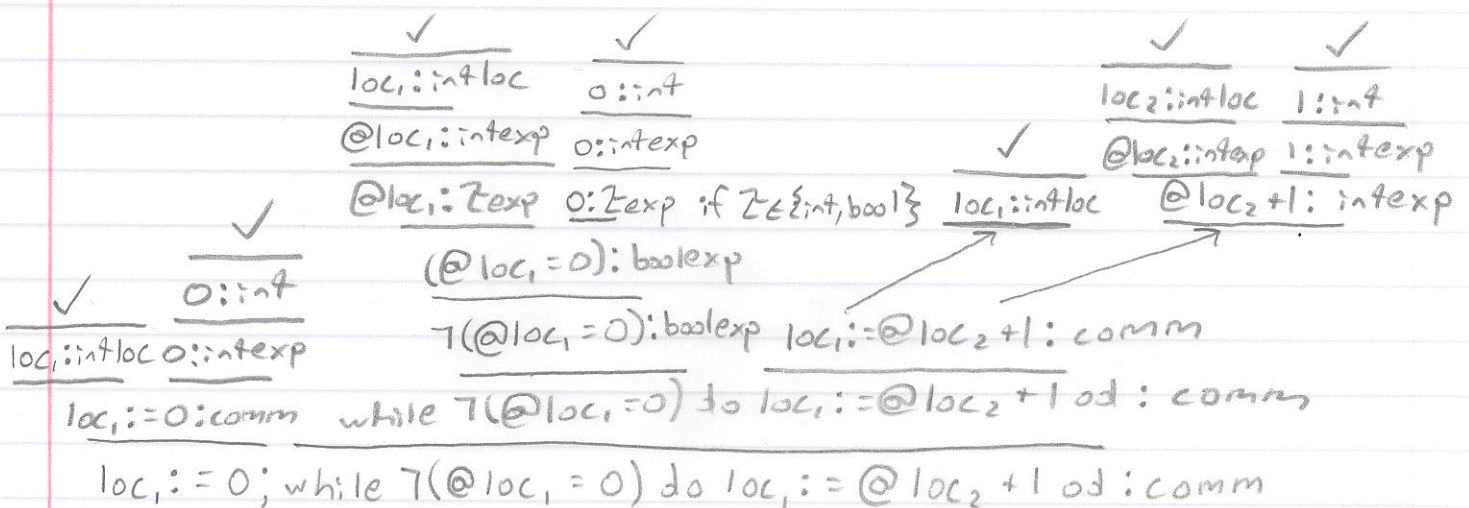 ✓ ✓ ✓ ✓
loc₁:intloc 0:int loc₂:intloc 1:int
@loc₁:intexp 0:intexp ✓ @loc₂:intexp 1:intexp
@loc₁:τexp 0:τexp if τ∈{int,bool} loc₁:intloc @loc₂+1: intexp
✓ (@loc₁=0):boolexp
✓ 0:int ¬(@loc₁=0):boolexp loc₁:=@loc₂+1: comm
loc₁:intloc 0:intexp
loc₁:=0:comm while ¬(@loc₁=0) do loc₁:=@loc₂+1 od: comm
loc₁:=0; while ¬(@loc₁=0) do loc₁:=@loc₂+1 od:comm